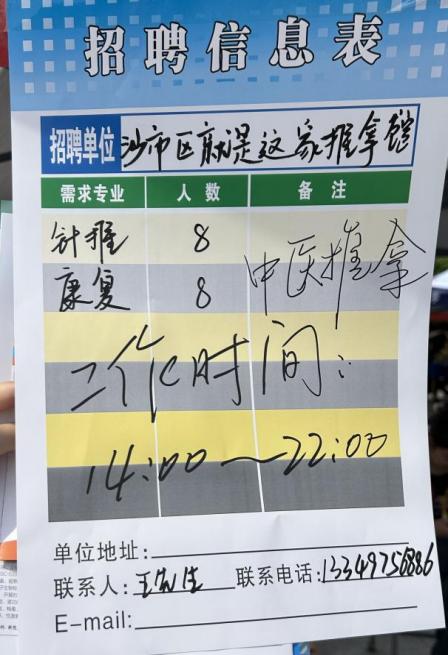 招聘信息表
招聘单位 沙市区就是这家推拿馆
需求专业 人数 备注
针推 8 中医推拿
康复 8
工作时间:
14:00~22:00
单位地址:
联系人:王先生 联系电话:13349756886
E-mail: